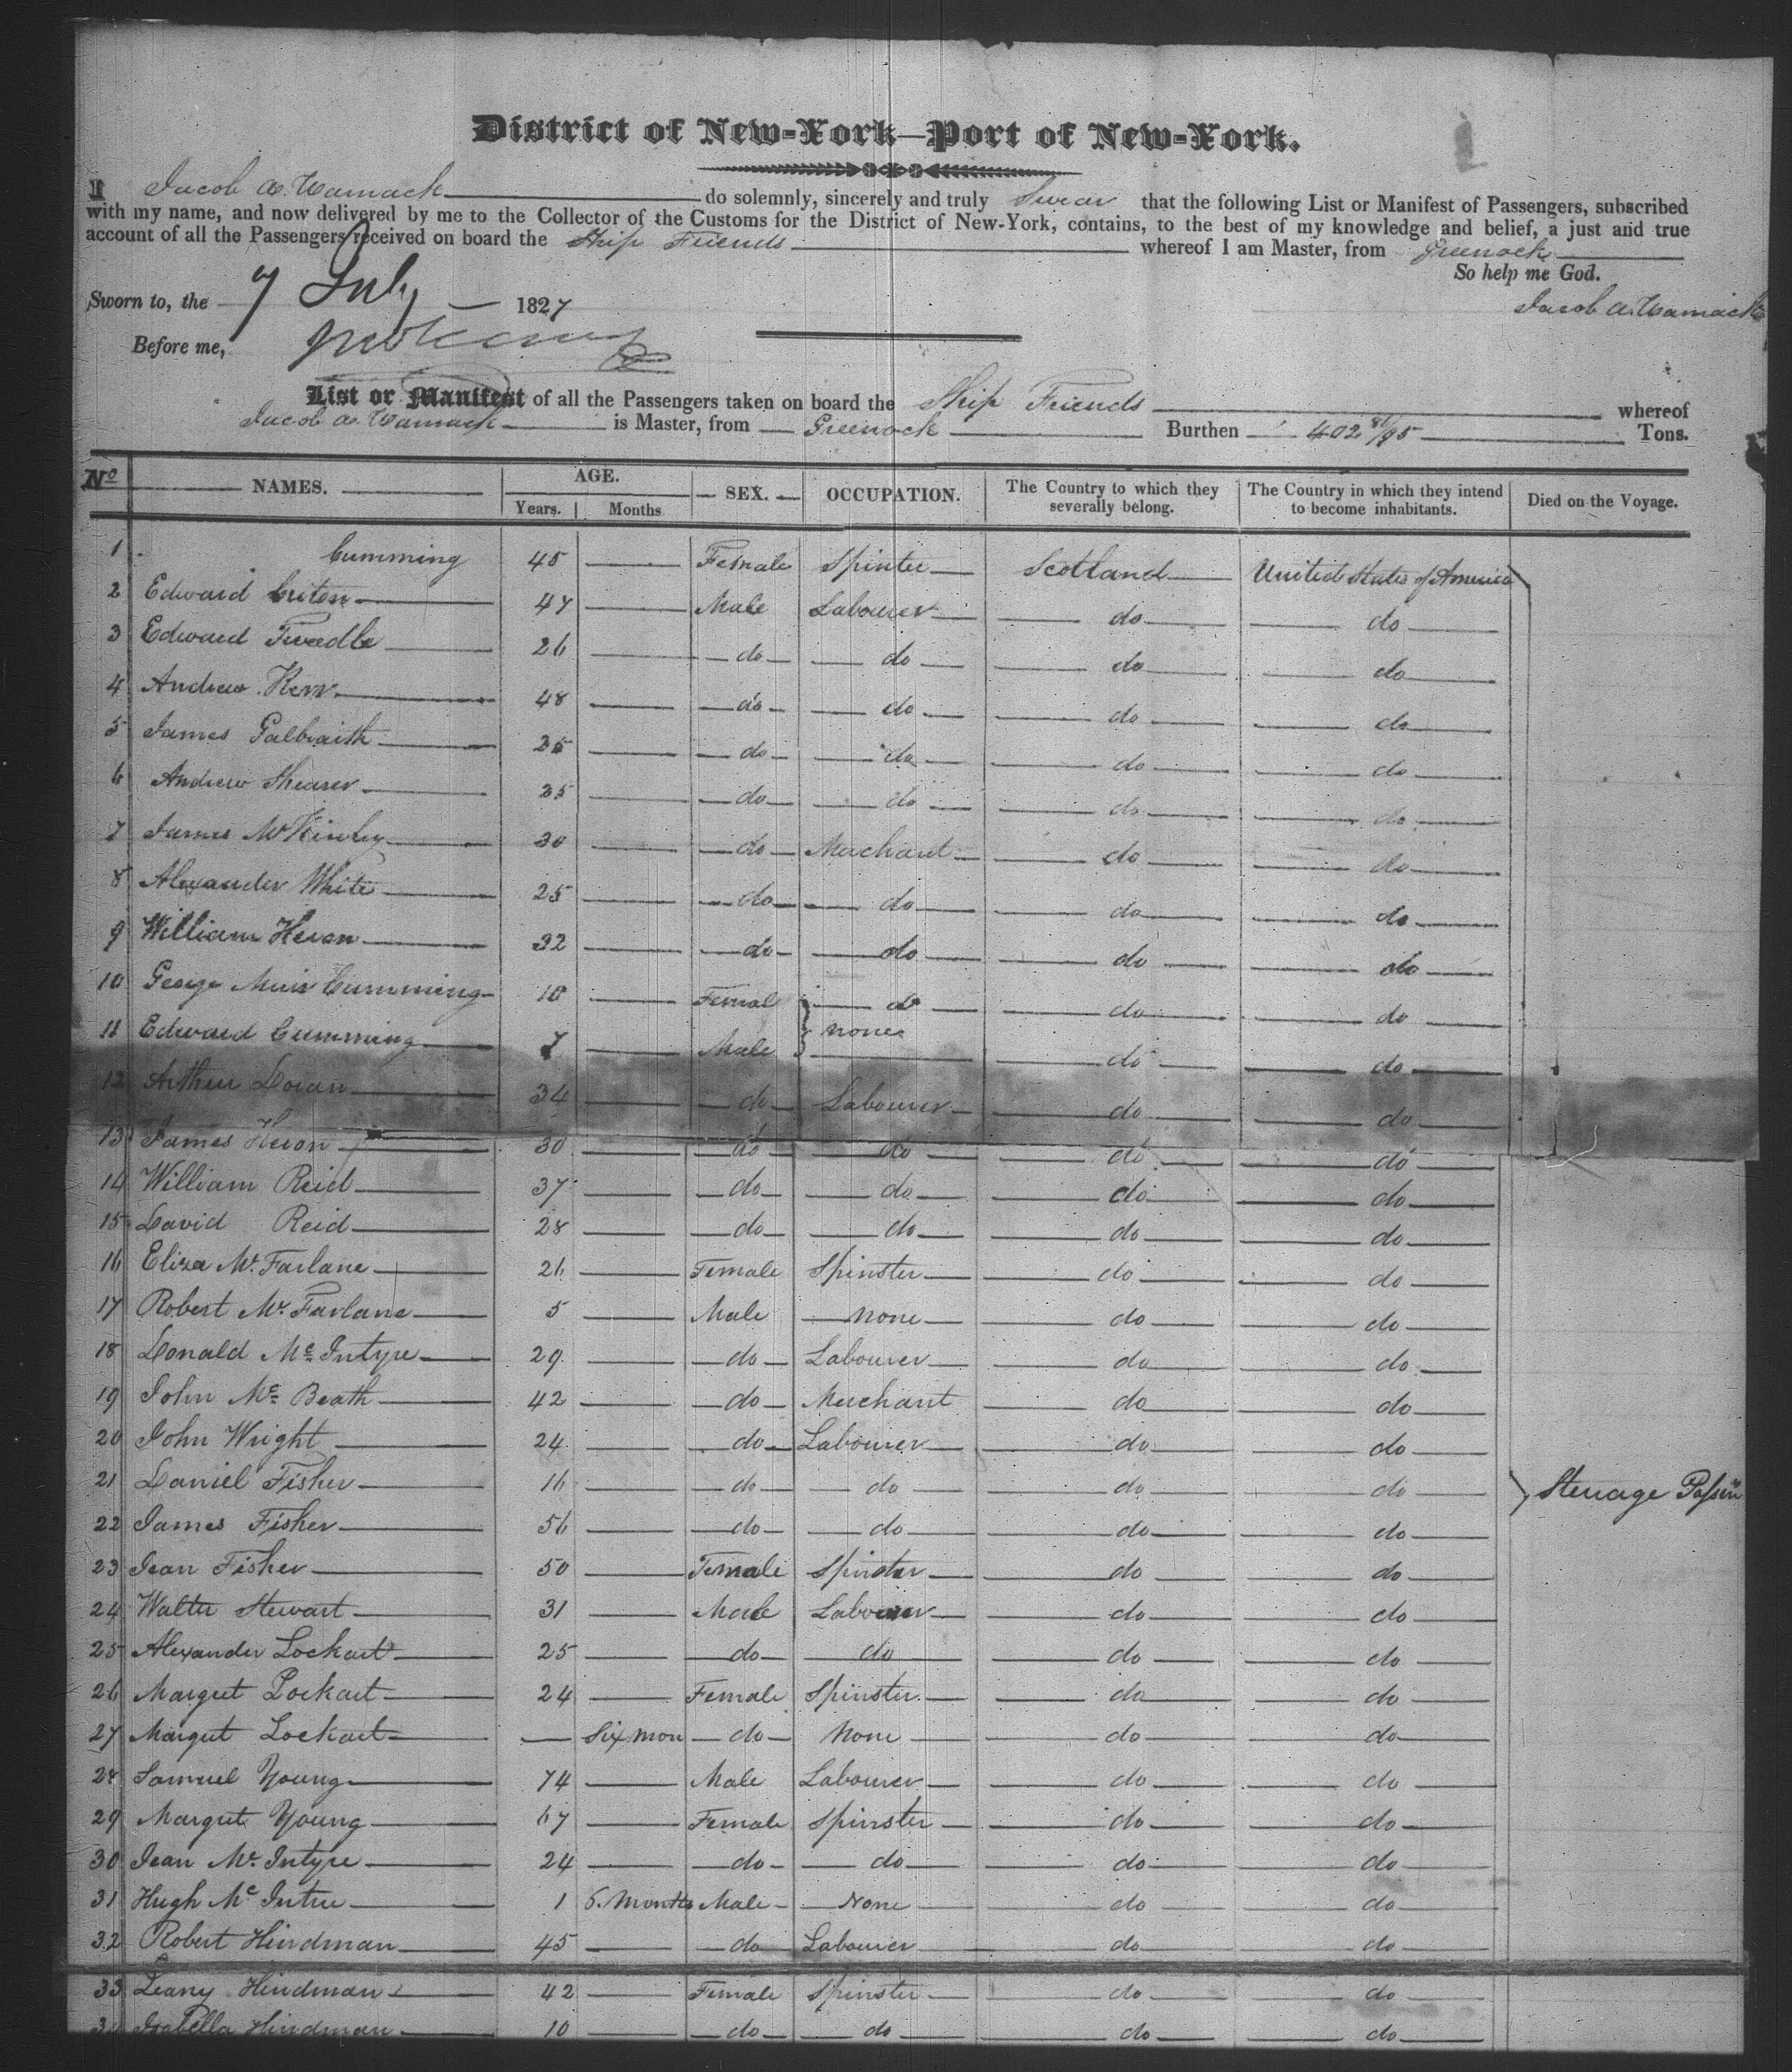 District of New-York—Port of New-York.
I Jacob A. Wamack do solemnly, sincerely and truly Swear that the following List or Manifest of Passengers, subscribed
with my name, and now delivered by me to the Collector of the Customs for the District of New-York, contains, to the best of my knowledge and belief, a just and true
account of all the Passengers received on board the Ship Friends whereof I am Master, from Greenock
So help me God.
Sworn to, the 7 July 1827
Jacob A. Wamack
Before me,
List or Manifest of all the Passengers taken on board the Ship Friends whereof
Jacob A. Wamack is Master, from Greenock Burthen 402 81/95 Tons.
No NAMES. AGE. Years. Months SEX. OCCUPATION. The Country to which they severally belong. The Country in which they intend to become inhabitants. Died on the Voyage.
1 Cumming 45 Female Spinter Scotland United States of America
2 Edward 47 Male Labourer do do
3 Edward Twedle 26 do do do do
4 Andrew Kerr 48 do do do do
5 James Galbraith 25 do do do do
6 Andrew Shearer 25 do do do do
7 James McKinley 30 do Merchant do do
8 Alexander White 25 do do do do
9 William Heron 32 do do do do
10 George Muir Cumming 10 Female do do do
11 Edward Cumming 7 Male none do do
12 Arthur Doran 34 do Labourer do do
13 James Heron 30 do do do do
14 William Reid 37 do do do do
15 David Reid 28 do do do do
16 Eliza Mc Farlane 26 Female Spinster do do
17 Robert Mc Farlane 5 Male none do do
18 Donald Mc Intyre 29 do Labourer do do
19 John Mc Beath 42 do Merchant do do
20 John Wright 24 do Labourer do do
21 Daniel Fisher 16 do do do do Steerage Passrs
22 James Fisher 56 do do do do
23 Jean Fisher 50 Female Spinster do do
24 Walter Stewart 31 Male Labourer do do
25 Alexander Lockart 25 do do do do
26 Margret Lockart 24 Female Spinster do do
27 Margret Lockart Six mon do None do do
28 Samuel Young 74 Male Labourer do do
29 Margret Young 67 Female Spinster do do
30 Jean Mc Intyre 24 do do do do
31 Hugh Mc Intire 1 6. Months Male None do do
32 Robert Hindman 45 do Labourer do do
33 Leany Hindman 42 Female Spinster do do
34 Isabella Hindman 10 do do do do